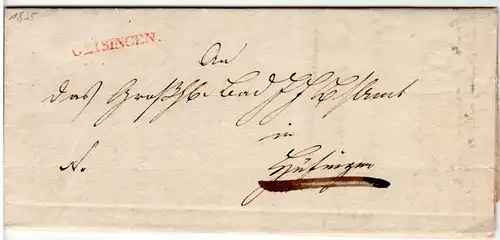 1825
GEISINGEN.
An
das Großh. Bad. F. F. B. Amt
in
N.
Hüfingen